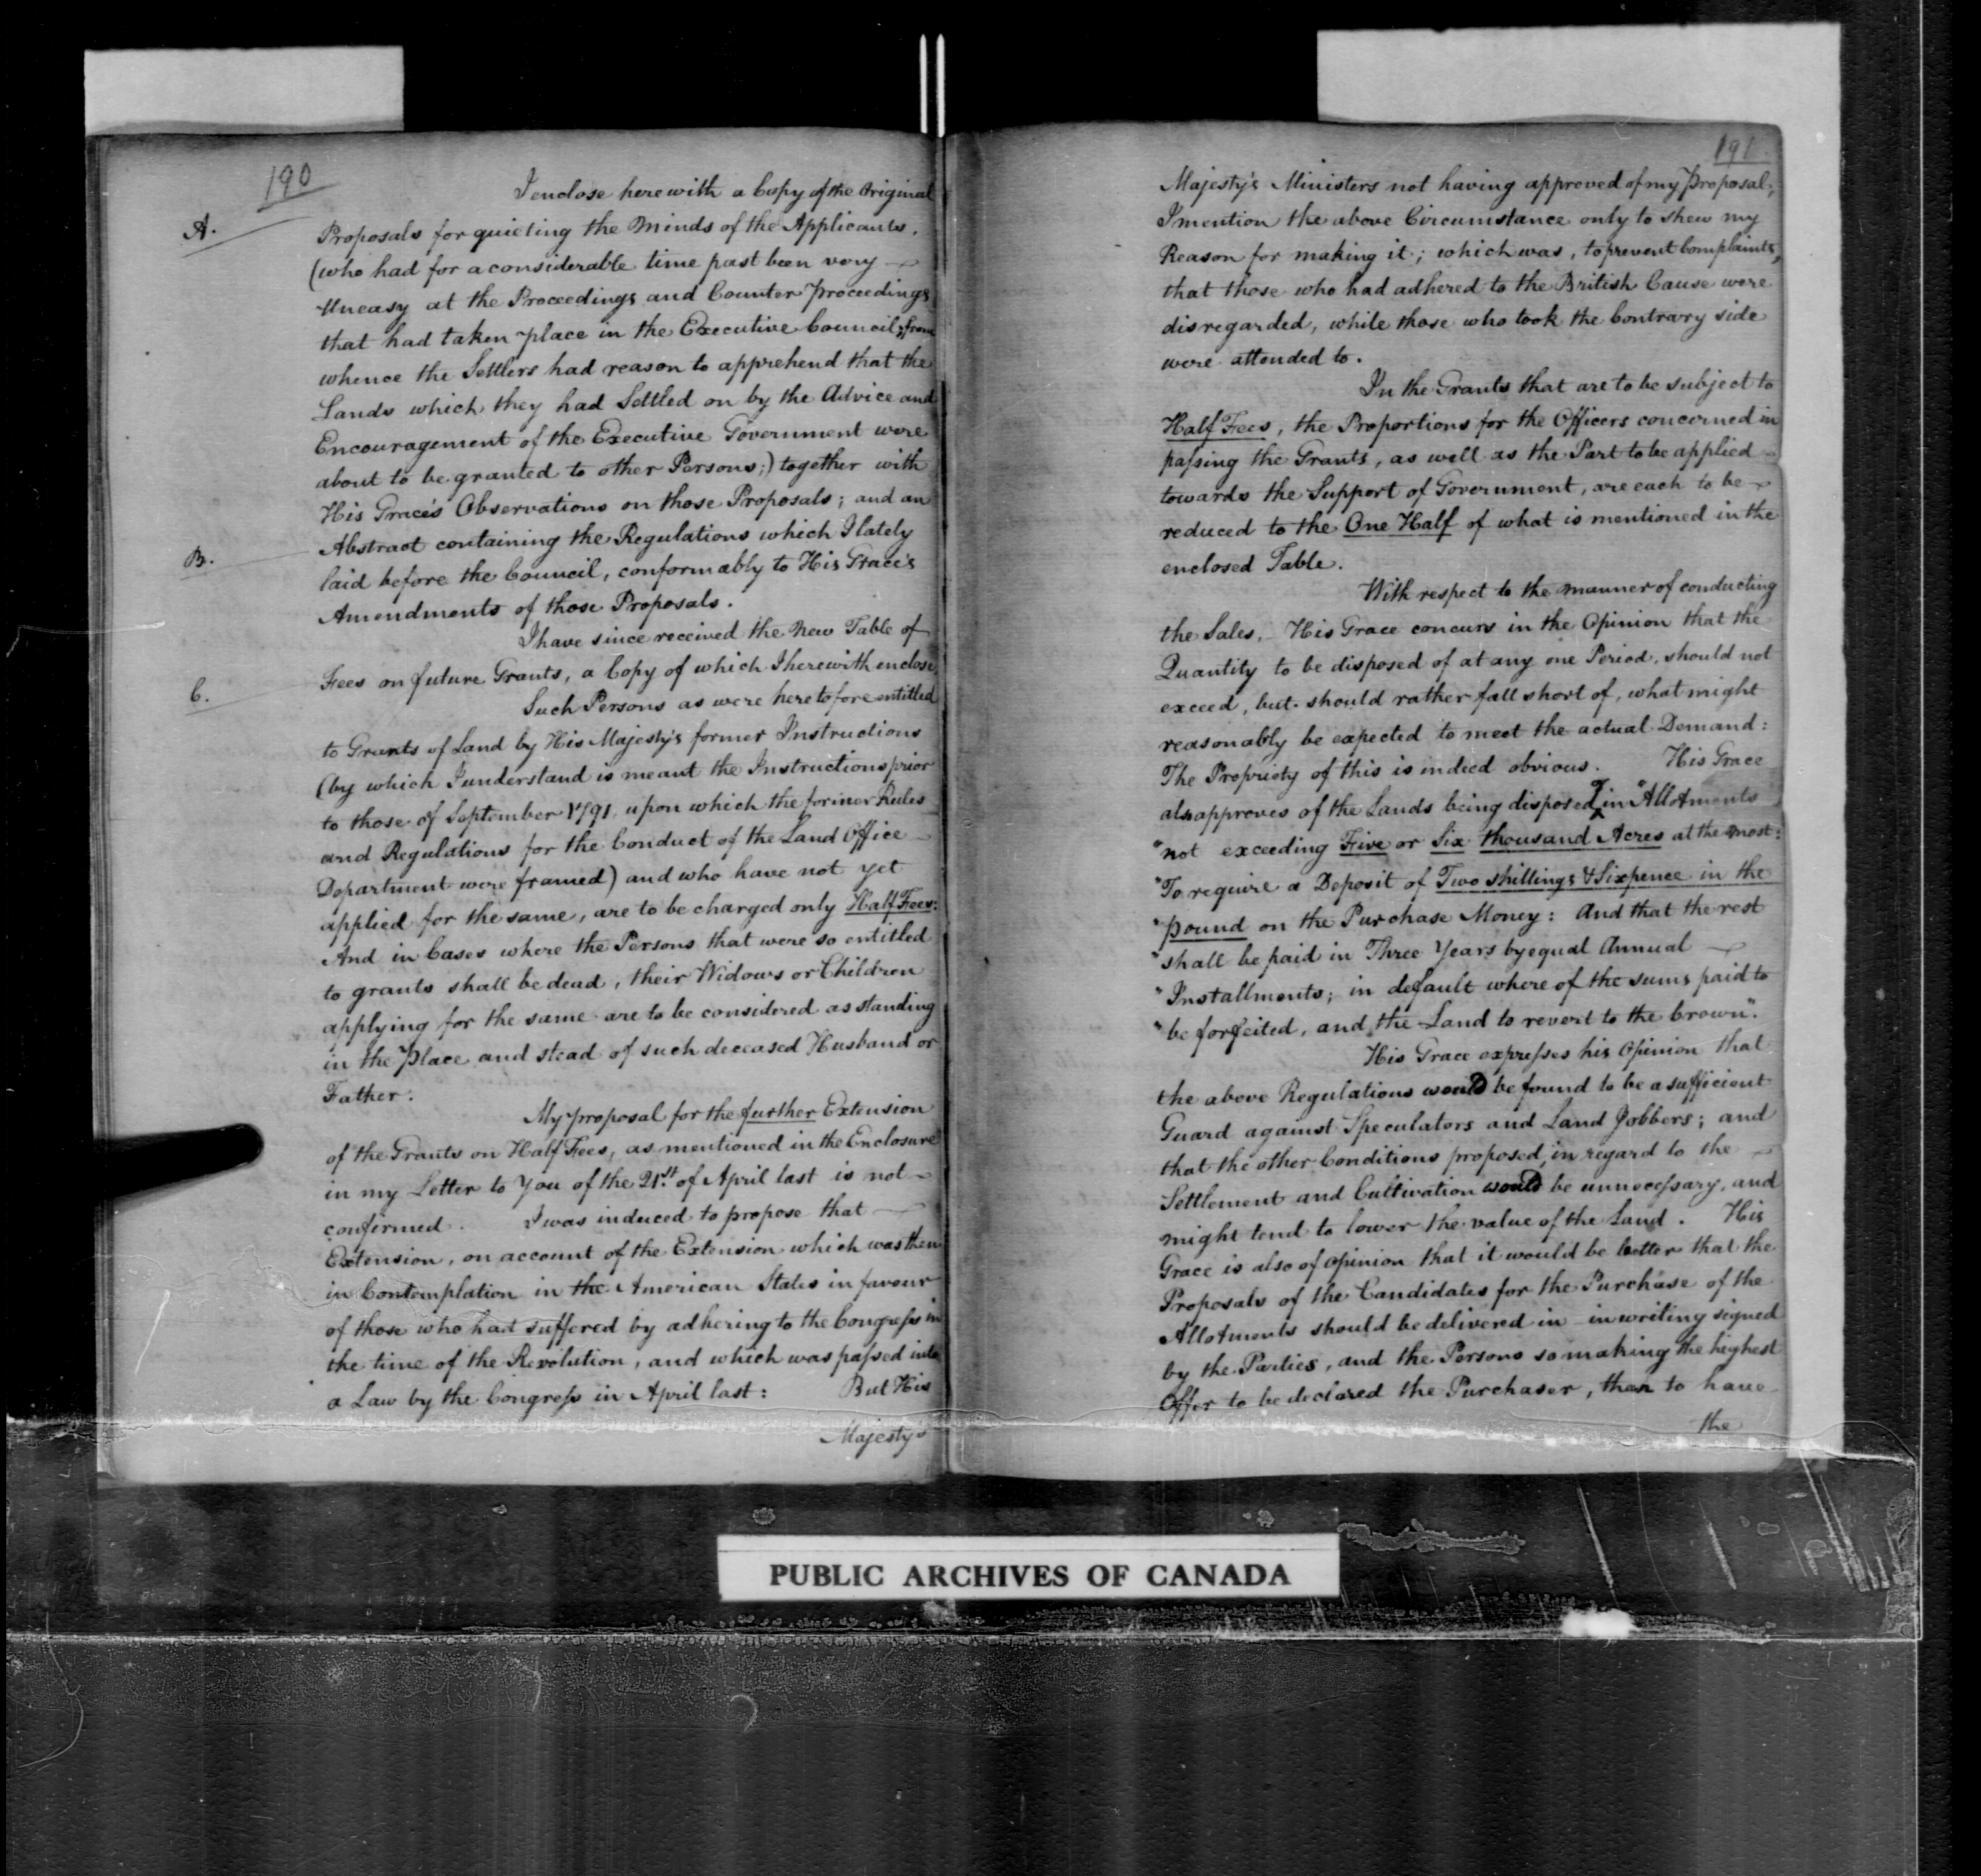 190
I enclose herewith a Copy of the Original
A.
Proposals for quieting the Minds of the Applicants,
(who had for a considerable time past been very
Uneasy at the Proceedings and Counter proceedings
that had taken place in the Executive Council; from
whence the Settlers had reason to apprehend that the
Lands which they had Settled on by the Advice and
Encouragement of the Executive Government were
about to be granted to other Persons;) together with
His Grace's Observations on those Proposals; and an
B.
Abstract containing the Regulations which I lately
laid before the Council, conformably to His Grace's
Amendments of those Proposals.
I have since received the New Table of
C.
Fees on future Grants, a Copy of which I herewith enclose.
Such Persons as were heretofore entitled
to Grants of Land by His Majesty's former Instructions
(by which I understand is meant the Instructions prior
to those of September 1791, upon which the former Rules
and Regulations for the Conduct of the Land Office
Department were framed) and who have not yet
applied for the same, are to be charged only Half Fees:
And in Cases where the Persons that were so entitled
to grants shall be dead, their Widows or Children
applying for the same are to be considered as standing
in the place and stead of such deceased Husband or
Father:
My proposal for the further Extension
of the Grants on Half Fees, as mentioned in the Enclosure
in my Letter to You of the 21st of April last is not
confirmed. I was induced to propose that
Extension, on account of the Extension which was then
in Contemplation in the American States in favour
of those who had suffered by adhering to the Congress in
the time of the Revolution, and which was passed into
a Law by the Congress in April last: But His
Majesty's
191
Majesty's Ministers not having approved of my Proposal,
I mention the above Circumstance only to shew my
Reason for making it; which was, to prevent Complaints,
that those who had adhered to the British Cause were
disregarded, while those who took the Contrary side
were attended to.
In the Grants that are to be subject to
Half Fees, the Proportions for the Officers concerned in
passing the Grants, as well as the Part to be applied
towards the Support of Government, are each to be
reduced to the One Half of what is mentioned in the
enclosed Table.
With respect to the manner of conducting
the Sales, His Grace concurs in the Opinion that the
Quantity to be disposed of at any one Period, should not
exceed, but should rather fall short of, what might
reasonably be expected to meet the actual Demand:
The Propriety of this is indeed obvious. His Grace
also approves of the Lands being disposed of in "Allotments
"not exceeding Five or Six thousand Acres at the most:
"To require a Deposit of Two shillings & Sixpence in the
"pound on the Purchase Money: And that the rest
"shall be paid in Three Years by equal Annual
"Installments; in default where of the sums paid to
"be forfeited, and the Land to revert to the Crown".
His Grace expresses his Opinion that
the above Regulations would be found to be a sufficient
Guard against Speculators and Land Jobbers; and
that the other Conditions proposed, in regard to the
Settlement and Cultivation would be unnecessary, and
might tend to lower the value of the Land. His
Grace is also of opinion that it would be better that the
Proposals of the Candidates for the Purchase of the
Allotments should be delivered in in writing signed
by the Parties, and the Persons so making the highest
Offer to be declared the Purchaser, than to have
the
PUBLIC ARCHIVES OF CANADA